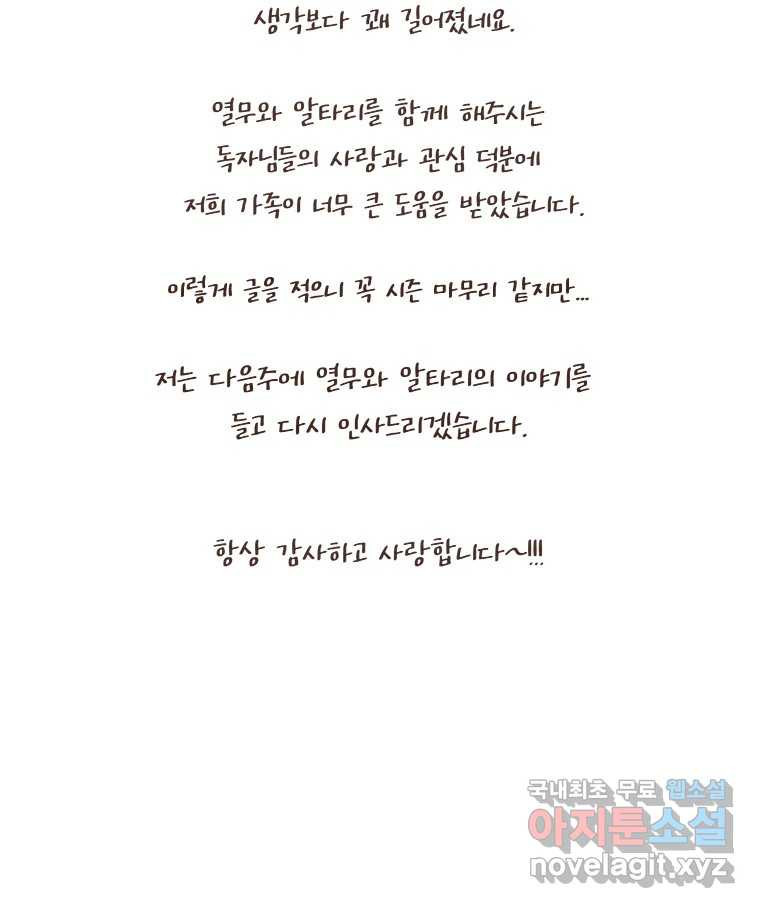 생각보다 꽤 길어졌네요.
열무와 알타리를 함께 해주시는
독자님들의 사랑과 관심 덕분에
저희 가족이 너무 큰 도움을 받았습니다.
이렇게 글을 적으니 꼭 시즌 마무리 같지만...
저는 다음주에 열무와 알타리의 이야기를
들고 다시 인사드리겠습니다.
항상 감사하고 사랑합니다~!!!
국내최초 무료 웹소설
아지툰소설
novelagit.xyz